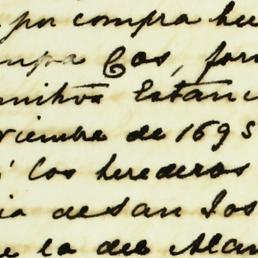 por compra he
Cos, for
Estanc
viembre de 1695
los herederos
ia de San Jos
e la del Alam